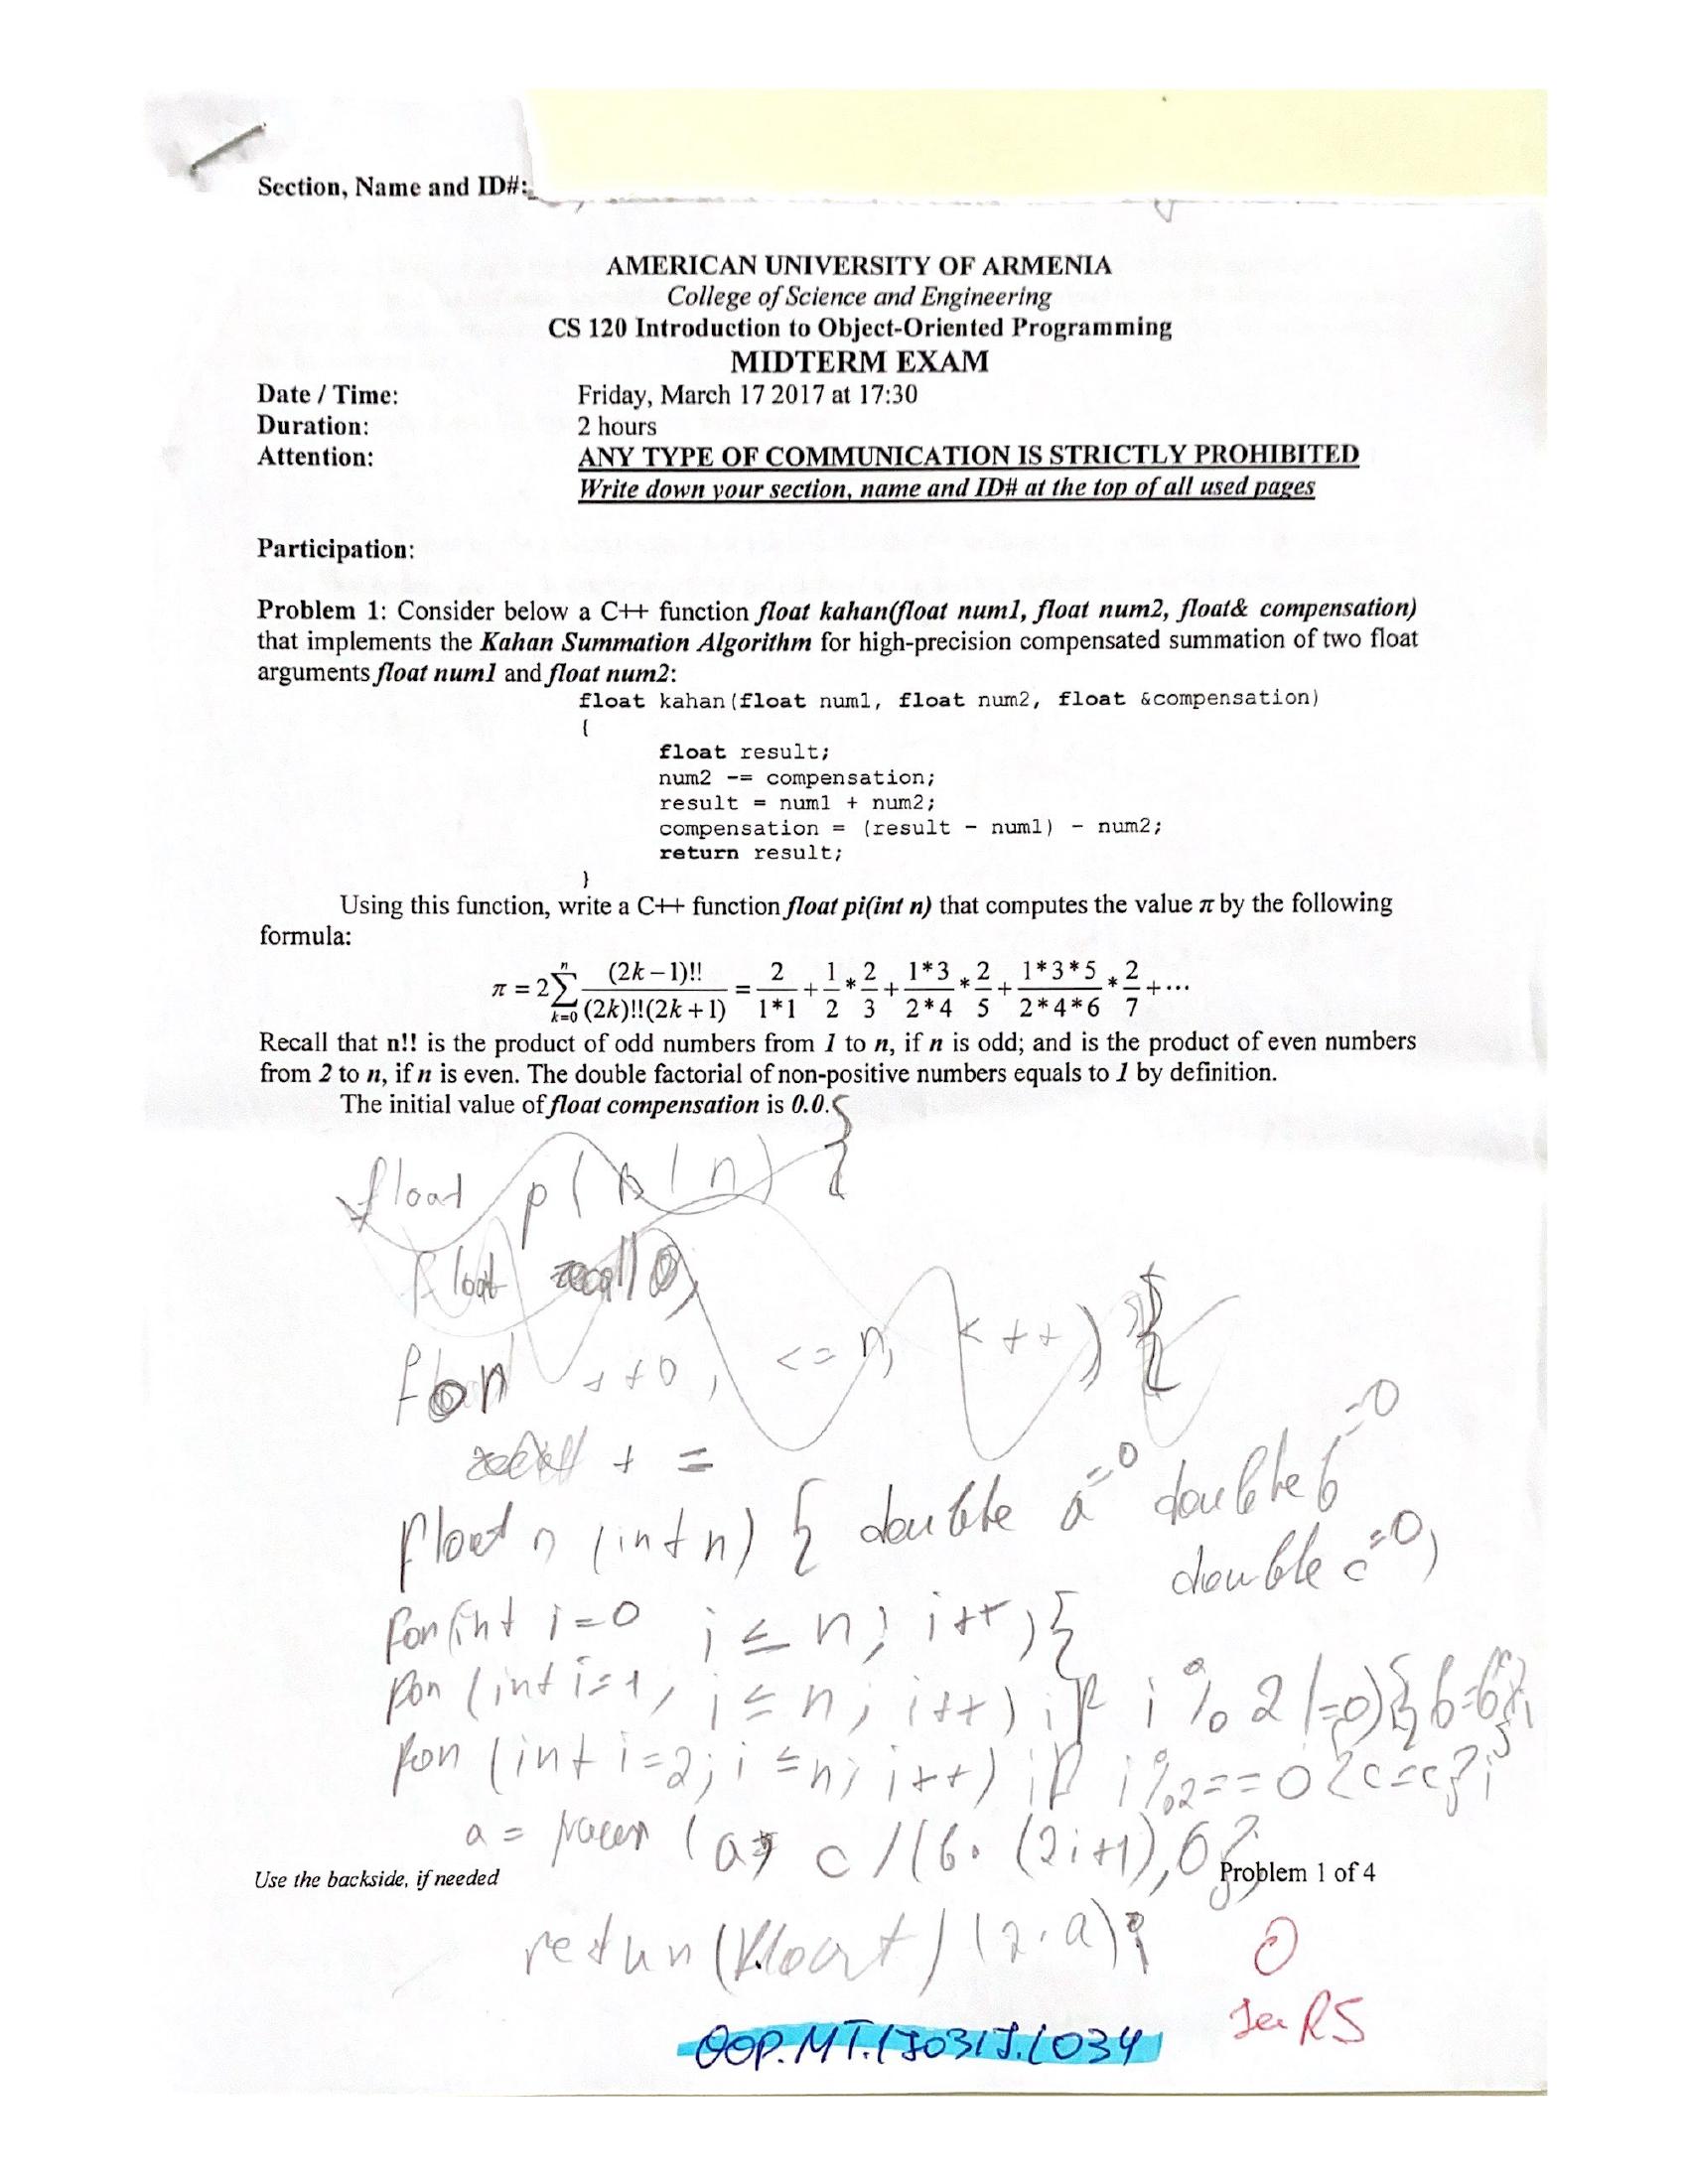 Section, Name and ID#:
AMERICAN UNIVERSITY OF ARMENIA
College of Science and Engineering
CS 120 Introduction to Object-Oriented Programming
MIDTERM EXAM
Date / Time: Friday, March 17 2017 at 17:30
Duration: 2 hours
Attention: ANY TYPE OF COMMUNICATION IS STRICTLY PROHIBITED
Write down your section, name and ID# at the top of all used pages
Participation:
Problem 1: Consider below a C++ function float kahan(float num1, float num2, float& compensation)
that implements the Kahan Summation Algorithm for high-precision compensated summation of two float
arguments float num1 and float num2:
float kahan(float num1, float num2, float &compensation)
{
float result;
num2 -= compensation;
result = num1 + num2;
compensation = (result - num1) - num2;
return result;
}
Using this function, write a C++ function float pi(int n) that computes the value π by the following
formula:
π = 2 ∑_{k=0}^{n} (2k-1)!! / ((2k)!!(2k+1)) = 2/(1*1) + 1/2 * 2/3 + (1*3)/(2*4) * 2/5 + (1*3*5)/(2*4*6) * 2/7 + ...
Recall that n!! is the product of odd numbers from 1 to n, if n is odd; and is the product of even numbers
from 2 to n, if n is even. The double factorial of non-positive numbers equals to 1 by definition.
The initial value of float compensation is 0.0.
float p( n) {
float
<= n, k++) {
+ =
float (int n) { double a=0 double b=0
double c=0;
for(int i=0 i ≤ n; i++){
for (int i=1, i ≤ n; i++) if i % 2 !=0){ b=b
for (int i=2; i ≤ n; i++) if i%2==0 {c=c
a = (a, c /(b. (2i+1),0
Use the backside, if needed Problem 1 of 4
retun(float) (2.a);
0
RS
OOP.MT.170317.1034